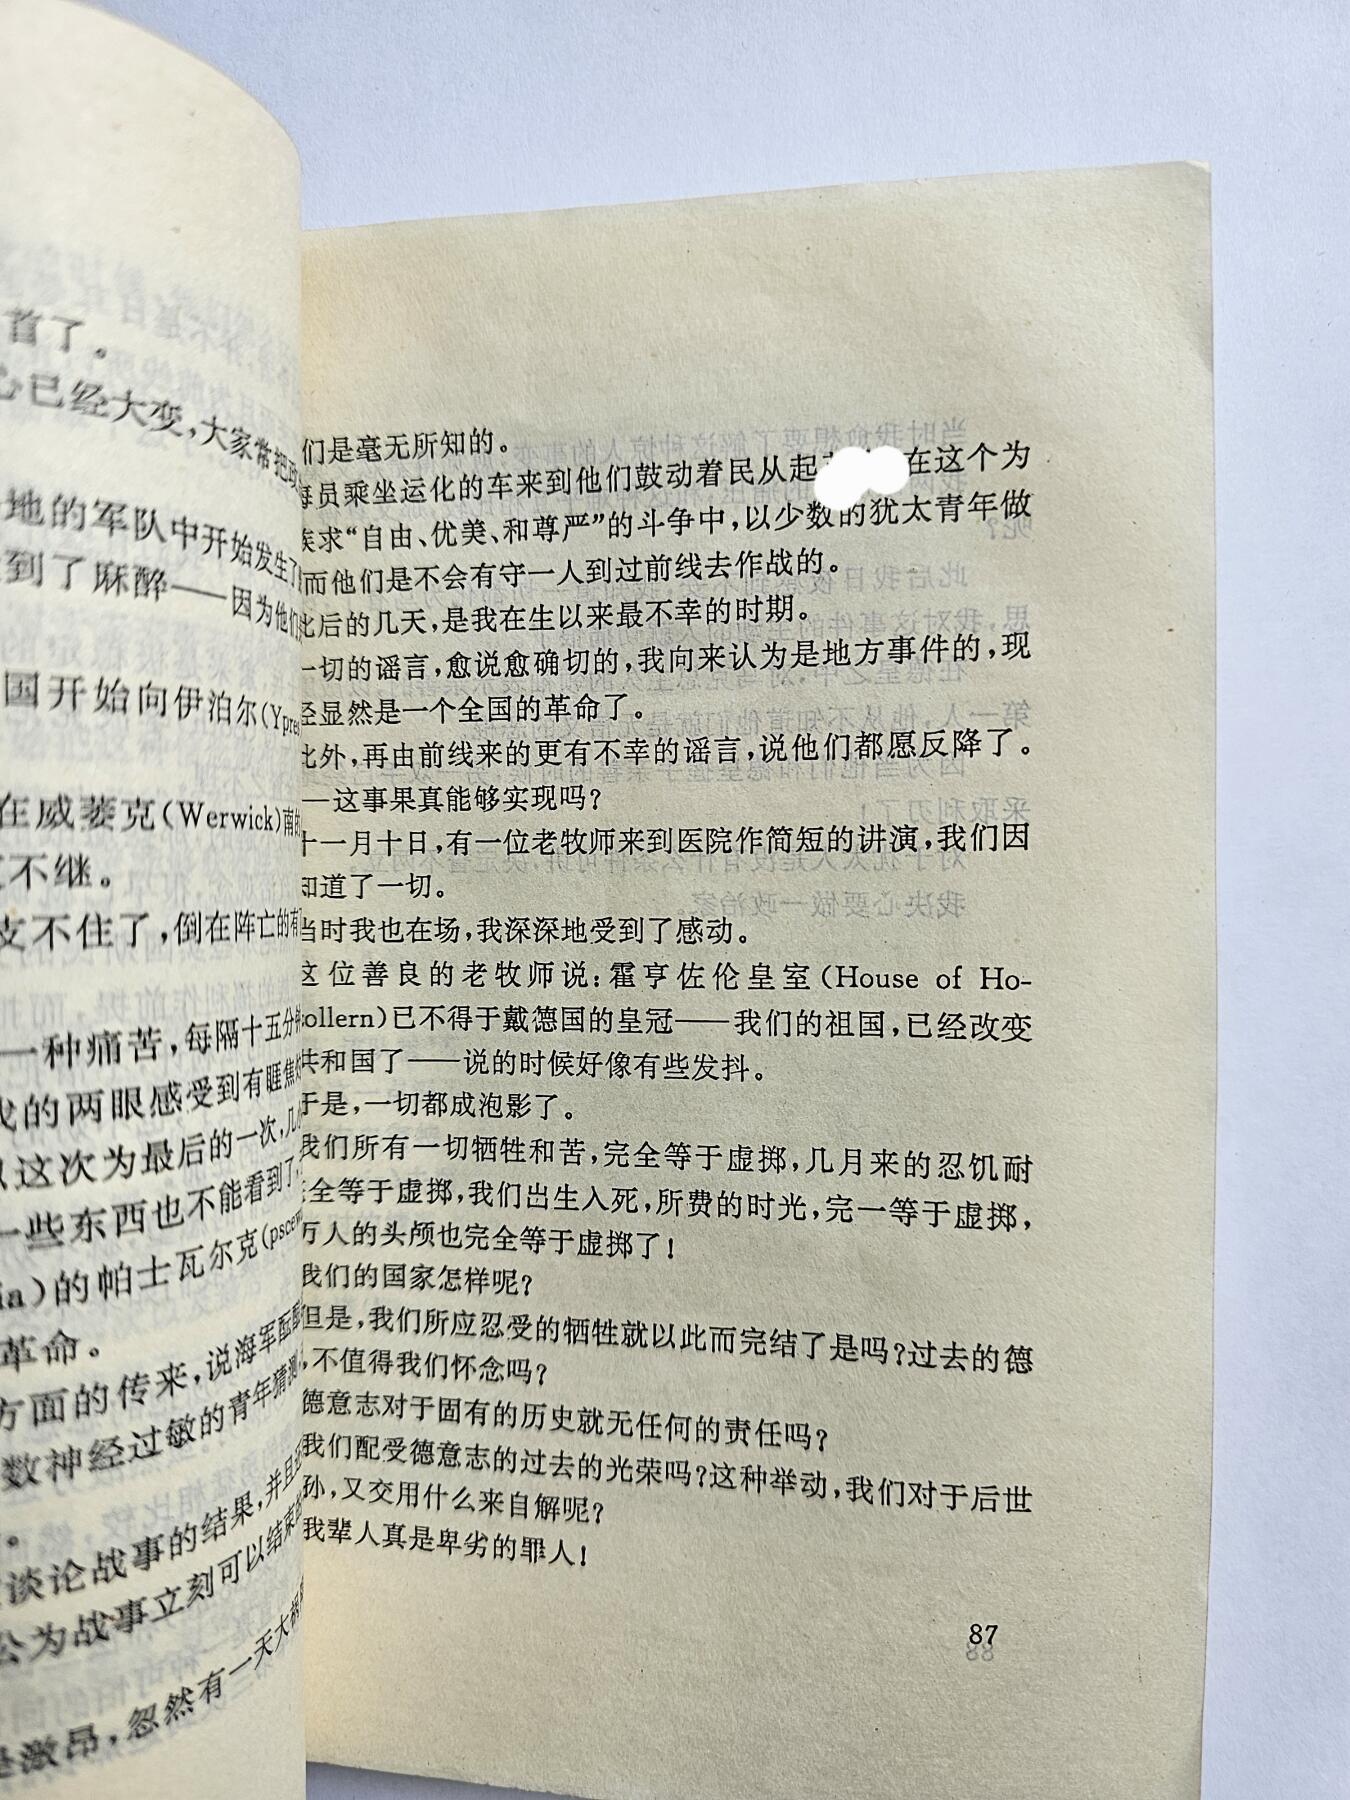 首了。
心已经大变,大家常把
地的军队中开始发生了
到了麻醉——因为他们
国开始向伊泊尔(Ypres
在威蒌克(Werwick)南的
不继。
支不住了,倒在阵亡的有
一种痛苦,每隔十五分钟
的两眼感受到有睚焦灼
这次为最后的一次,几个
一些东西也不能看到了,
ia)的帕士瓦尔克(pscew
革命。
方面的传来,说海军酝酿
数神经过敏的青年猜测
。
谈论战事的结果,并且还
公为战事立刻可以结束的
是激昂,忽然有一天大祸
们是毫无所知的。
每员乘坐运化的车来到他们鼓动着民从起 在这个为
族求“自由、优美、和尊严”的斗争中,以少数的犹太青年做
而他们是不会有守一人到过前线去作战的。
此后的几天,是我在生以来最不幸的时期。
一切的谣言,愈说愈确切的,我向来认为是地方事件的,现
经显然是一个全国的革命了。
比外,再由前线来的更有不幸的谣言,说他们都愿反降了。
—这事果真能够实现吗?
十一月十日,有一位老牧师来到医院作简短的讲演,我们因
知道了一切。
当时我也在场,我深深地受到了感动。
这位善良的老牧师说:霍亨佐伦皇室(House of Ho-
ollern)已不得于戴德国的皇冠——我们的祖国,已经改变
共和国了——说的时候好像有些发抖。
于是,一切都成泡影了。
我们所有一切牺牲和苦,完全等于虚掷,几月来的忍饥耐
全等于虚掷,我们出生入死,所费的时光,完一等于虚掷,
万人的头颅也完全等于虚掷了!
我们的国家怎样呢?
但是,我们所应忍受的牺牲就以此而完结了是吗?过去的德
,不值得我们怀念吗?
德意志对于固有的历史就无任何的责任吗?
我们配受德意志的过去的光荣吗?这种举动,我们对于后世
孙,又交用什么来自解呢?
我辈人真是卑劣的罪人!
87